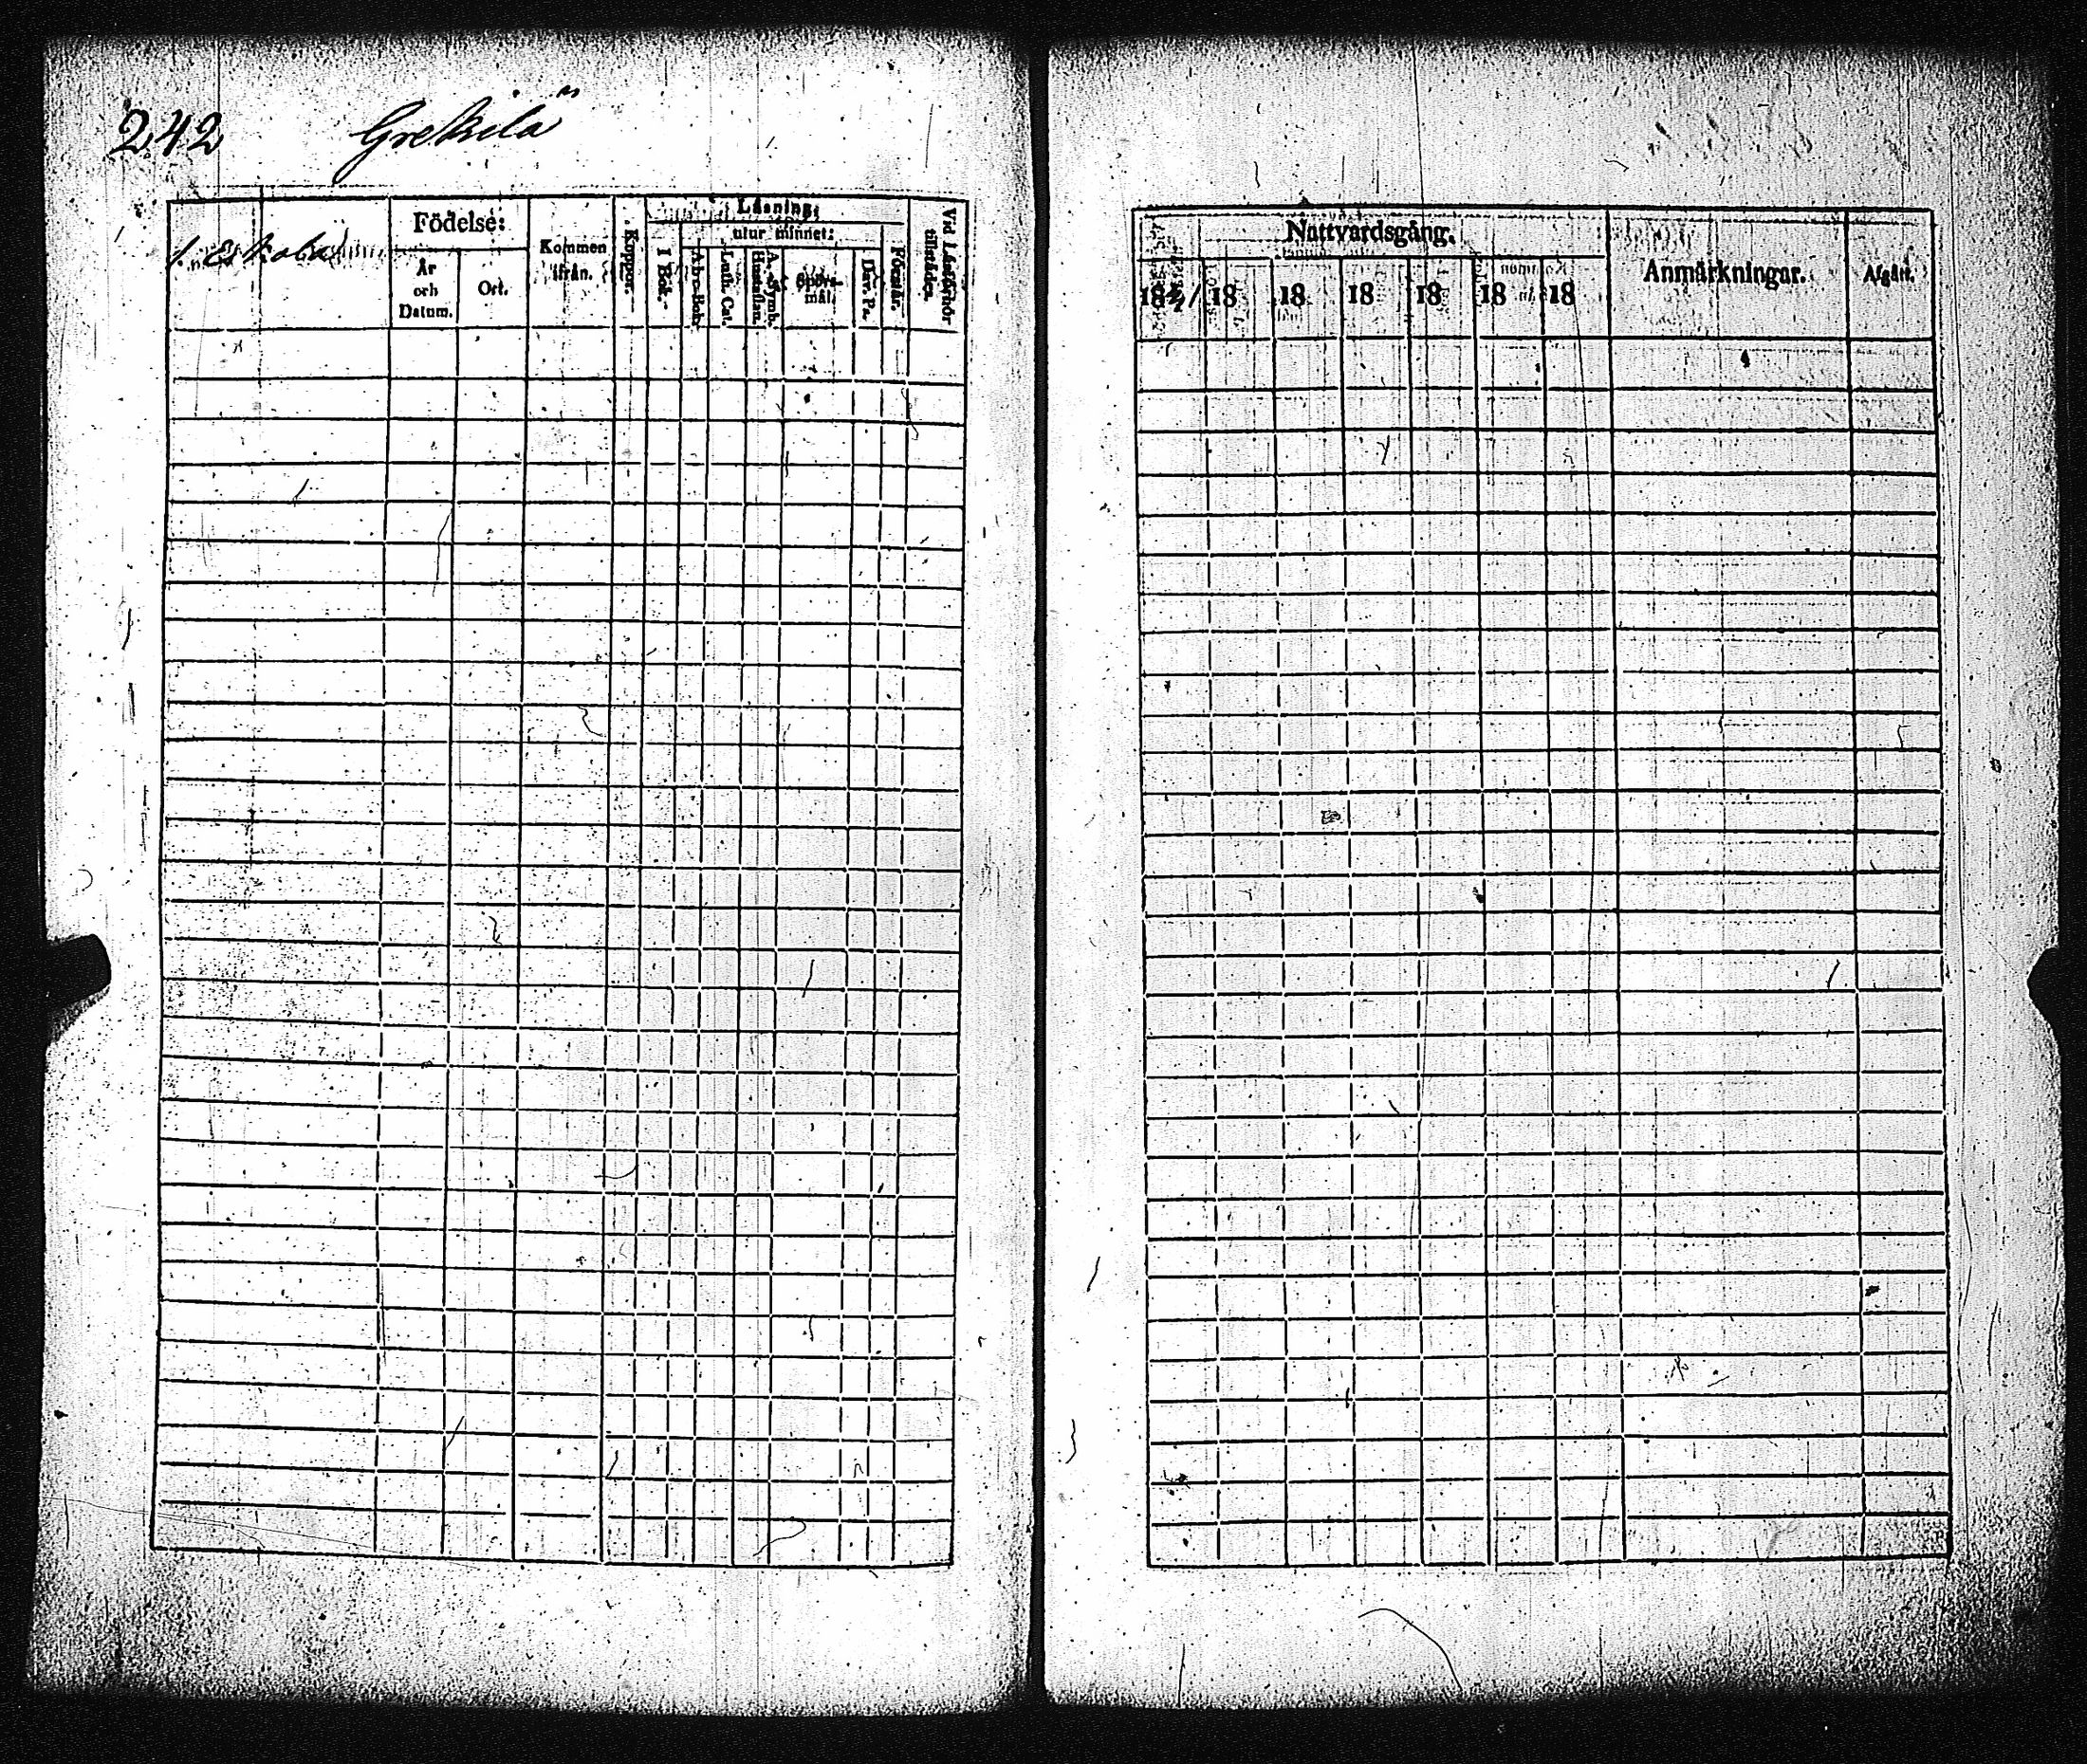 242 Grekilä
1. Eskola
Födelse:
År och Datum.
Ort.
Kommen ifrån.
Koppor.
Läsning:
utur minnet:
I Bok.
A-b-c-Bok.
Luth. Cat.
Hustaflan.
A. Symb.
Spörsmål.
Dav. Ps.
Förstår.
Vid Läsförhör tillstädes.
Nattvardsgång.
18 18 18 18 18 18 18
Anmärkningar.
Afgått.